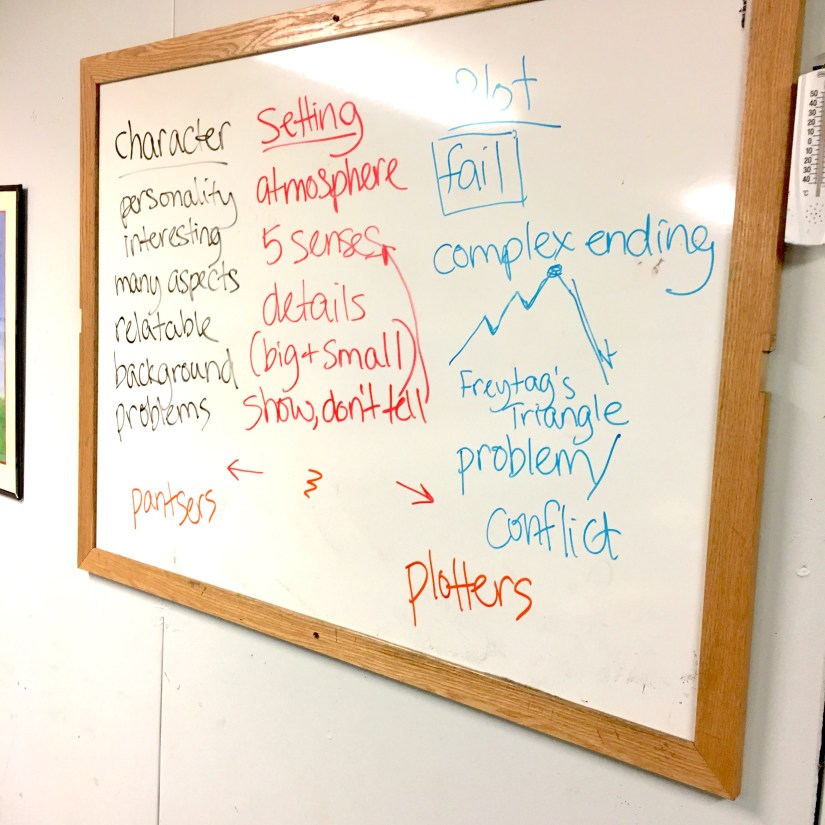 character
personality
interesting
many aspects
relatable
background
problems
Setting
atmosphere
5 senses
details
(big + small)
show, don't tell
Plot
fail
complex ending
Freytag's
Triangle
problem/
Conflict
pantsers
plotters
50
40
30
20
10
0
10
20
30
40
°C